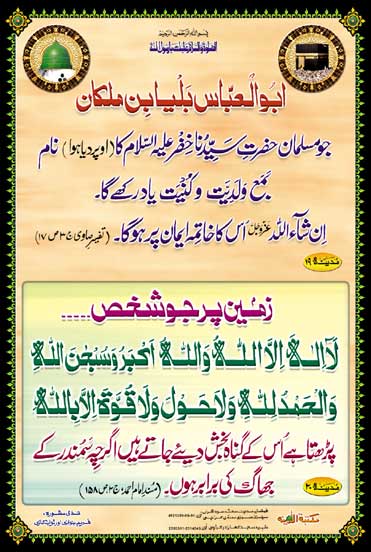 بِسْمِ اللهِ الرَّحْمٰنِ الرَّحِيْمِ
اَلصَّلٰوةُ وَالسَّلَامُ عَلَيْكَ يَا رَسُوْلَ اللهِ
ابوالعبّاس بَلْیَا بن ملکان
جو مسلمان حضرتِ سیِّدُنا خِضَر علیہ السّلام کا (اوپر دیا ہوا) نام
بمع ولدیّت و کُنیّت یاد رکھے گا۔
اِن شآءَ اللہ عَزَّوَجَلَّ اُس کا خاتِمہ ایمان پر ہوگا۔ (تفسیرِ صاوی ج ۳ ص ۱۷)
مدینہ ۱۹
زمین پر جو شخص .....
لَآ اِلٰهَ اِلَّا اللهُ وَاللهُ اَكْبَرُ وَسُبْحٰنَ اللهِ
وَالْحَمْدُ لِلّٰهِ وَلَا حَوْلَ وَلَا قُوَّةَ اِلَّا بِاللهِ
پڑھتا ہے اُس کے گناہ بخش دیئے جاتے ہیں اگرچِہ سَمُندر کے
جھاگ کی برابر ہوں۔ (مُسندِ امام احمد، ج ۲ ص ۱۵۸)
مدینہ ۲۰
مکتبۃ المدینہ